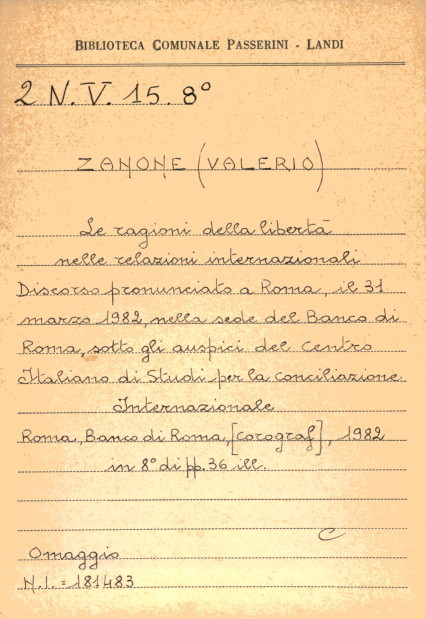 BIBLIOTECA COMUNALE PASSERINI - LANDI
2 N.V. 15. 8°
ZANONE (VALERIO)
Le ragioni della libertà
nelle relazioni internazionali
Discorso pronunciato a Roma, il 31
marzo 1982, nella sede del Banco di
Roma, sotto gli auspici del Centro
Italiano di Studi per la conciliazione
Internazionale
Roma, Banco di Roma, [Corograf], 1982
in 8° di pp. 36 ill.
C
Omaggio
N.I. = 181483